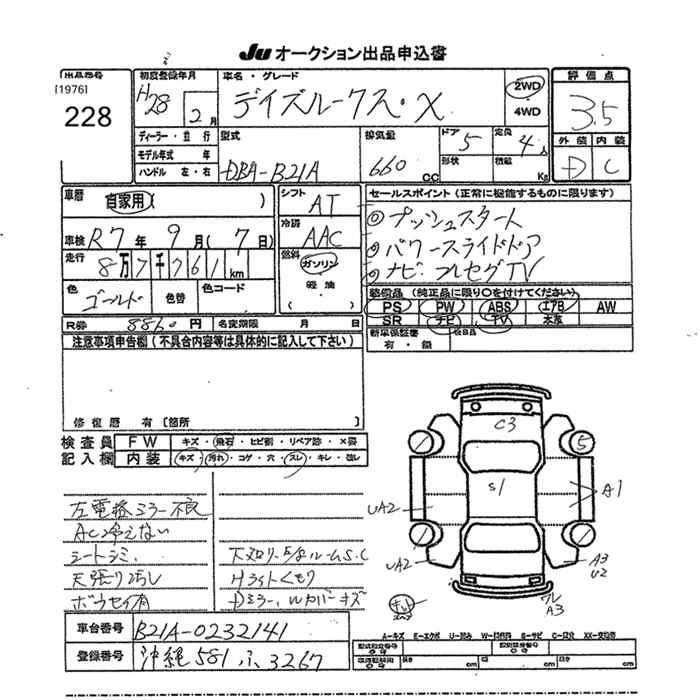 JU オークション出品申込書
出品番号 初度登録年月 車名・グレード 評価点
[1976] 228 H28 2月 デイズルークス・X 2WD 4WD 3.5
ディーラー・並行 型式 排気量 ドア 5 定員 4人 外装 内装
モデル年式 年 DBA-B21A 660 CC 形状 積載 Kg D C
ハンドル 左・右
車歴 自家用( ) シフト AT セールスポイント(正常に機能するものに限ります)
◎プッシュスタート
車検 R7年 9月(7日) 冷房 AAC ◎パワースライドドア
走行 8万7千761km 燃料 ガソリン 軽油 ◎ナビ・フルセグTV
色 ゴールド 色替 色コード 装備品(純正品に限り○を付けてください)
PS PW ABS エアB AW
R券 8860円 名変期限 月 日 SR ナビ TV 本革
注意事項申告欄(不具合内容等は具体的に記入して下さい) 新車保証書 有・無 後日品
修復歴 有[箇所 ]
検査員 FW キズ・飛石・ヒビ割・リペア跡・×要
記入欄 内装 キズ・汚れ・コゲ・穴・スレ・キレ・強し
C3
5
S1
A1
UA2
UA2
A3
U2
キット
スペア
ワレ
A3
左電格ミラー不良
AC冷えない
シートシミ、 下廻り・E/gルームS.C
天張り汚レ Hライトくもり
ボウセイ有 Dミラー、Wカバーキズ
車台番号 B21A-0232141
A-キズ E-エクボ U-凹み W-補修跡 S-サビ C-腐食 XX-交換済
登録番号 沖縄 581 ふ 3267
長さ cm 幅 cm 高さ cm